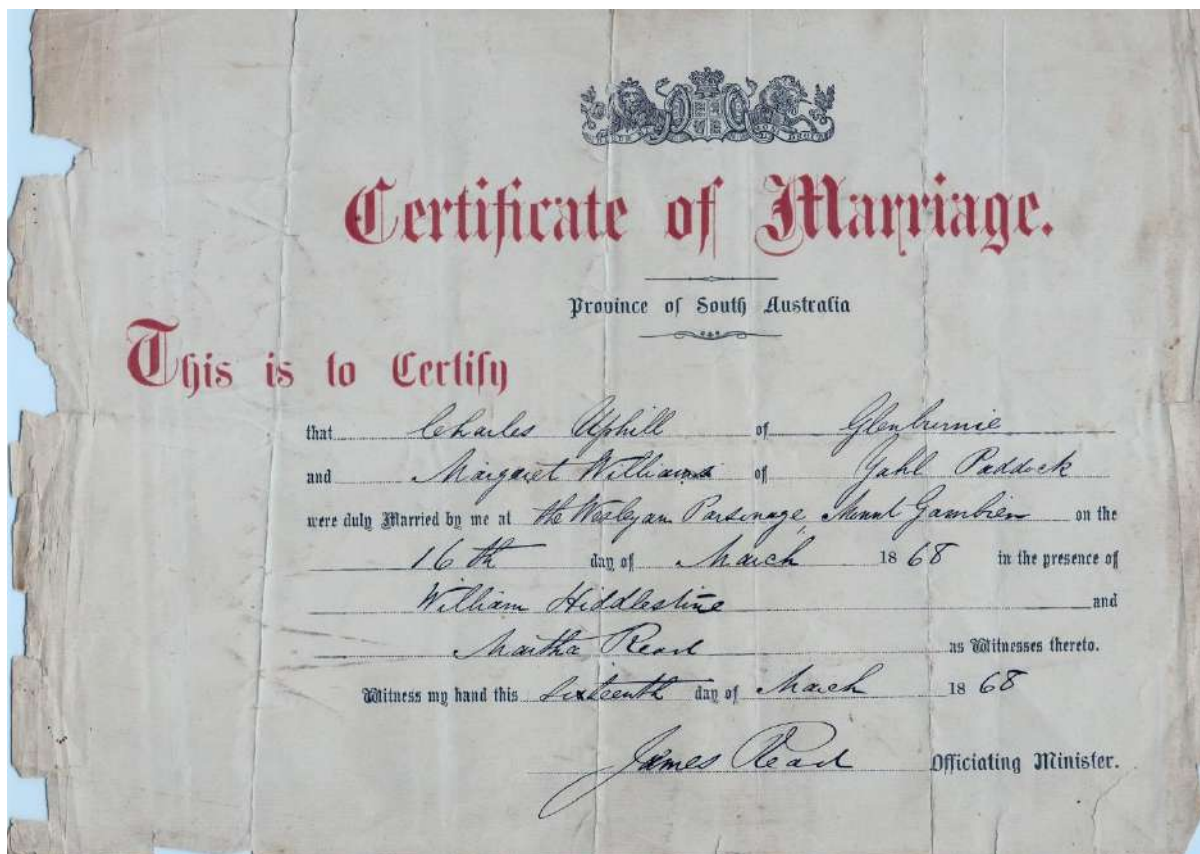 Certificate of Marriage.
Province of South Australia
This is to Certify
that Charles Uphill of Glenburnie
and Margaret Williams of Yahl Paddock
were duly Married by me at the Wesleyan Parsonage, Mount Gambier on the
16th day of March 1868 in the presence of
William Hiddlestine and
Martha Read as Witnesses thereto.
Witness my hand this Sixteenth day of March 1868
James Read Officiating Minister.